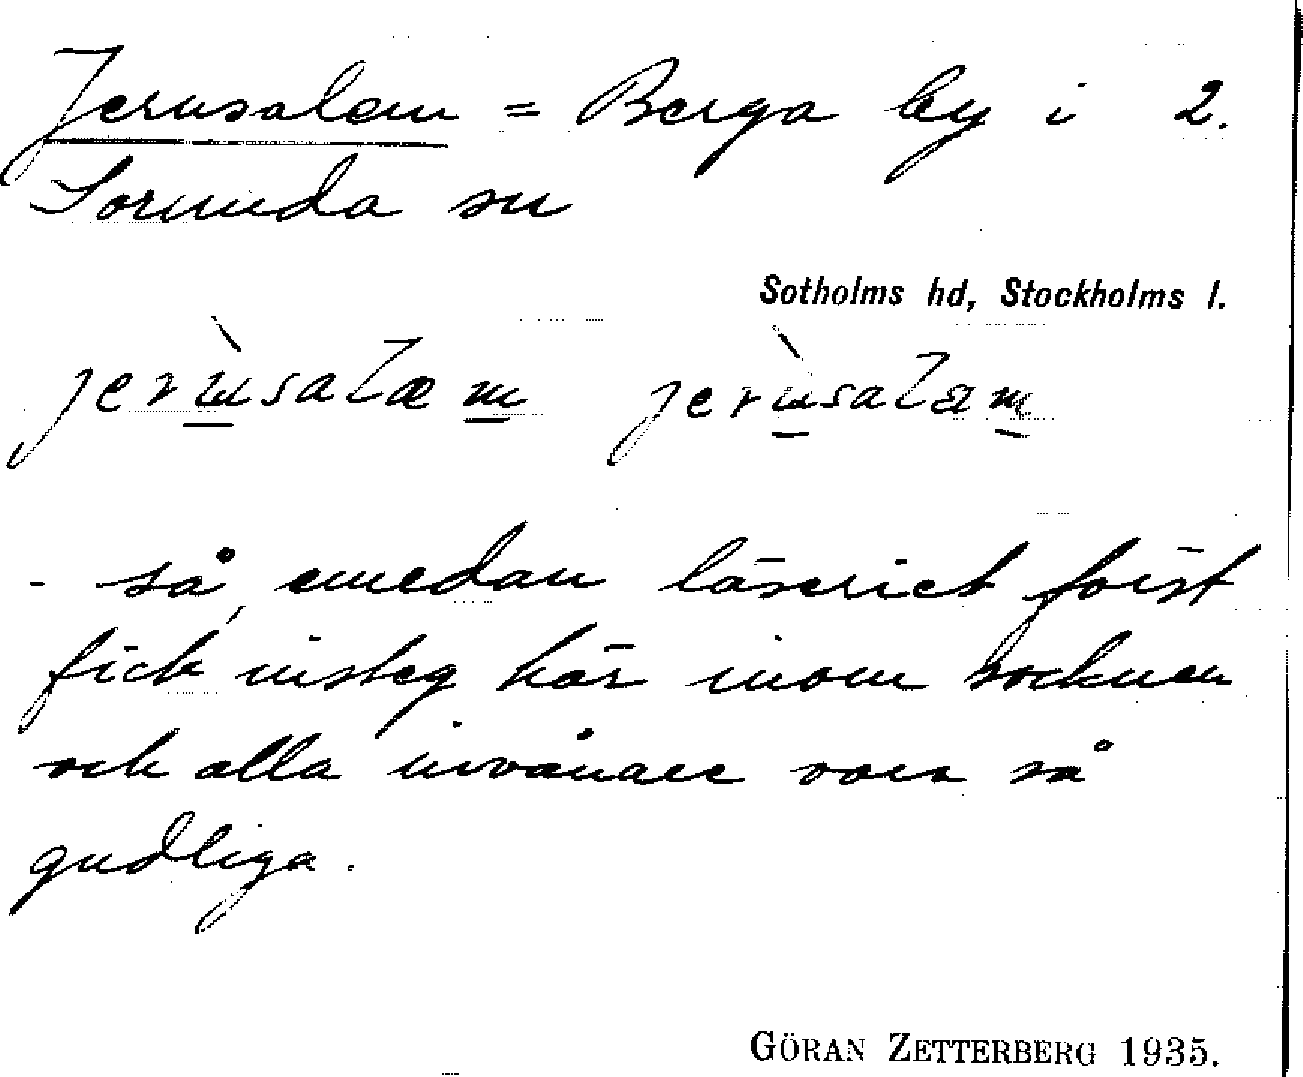 Jerusalem = Berga by i 2.
Sorunda sn
Sotholms hd, Stockholms l.
jerùsalæm jerùsalam
- så, emedan läseriet först
fick insteg här inom socknen
och alla invånare voro så
gudliga.
GÖRAN ZETTERBERG 1935.